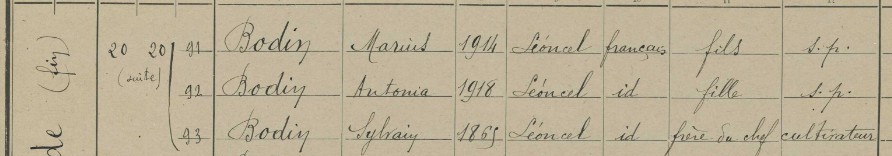 20 20 91 Bodin Marius 1914 Léoncel français fils s.p.
(suite) 92 Bodin Antonia 1918 Léoncel id fille s.p.
93 Bodin Sylvain 1865 Léoncel id frère du chef cultivateur
de (fin)